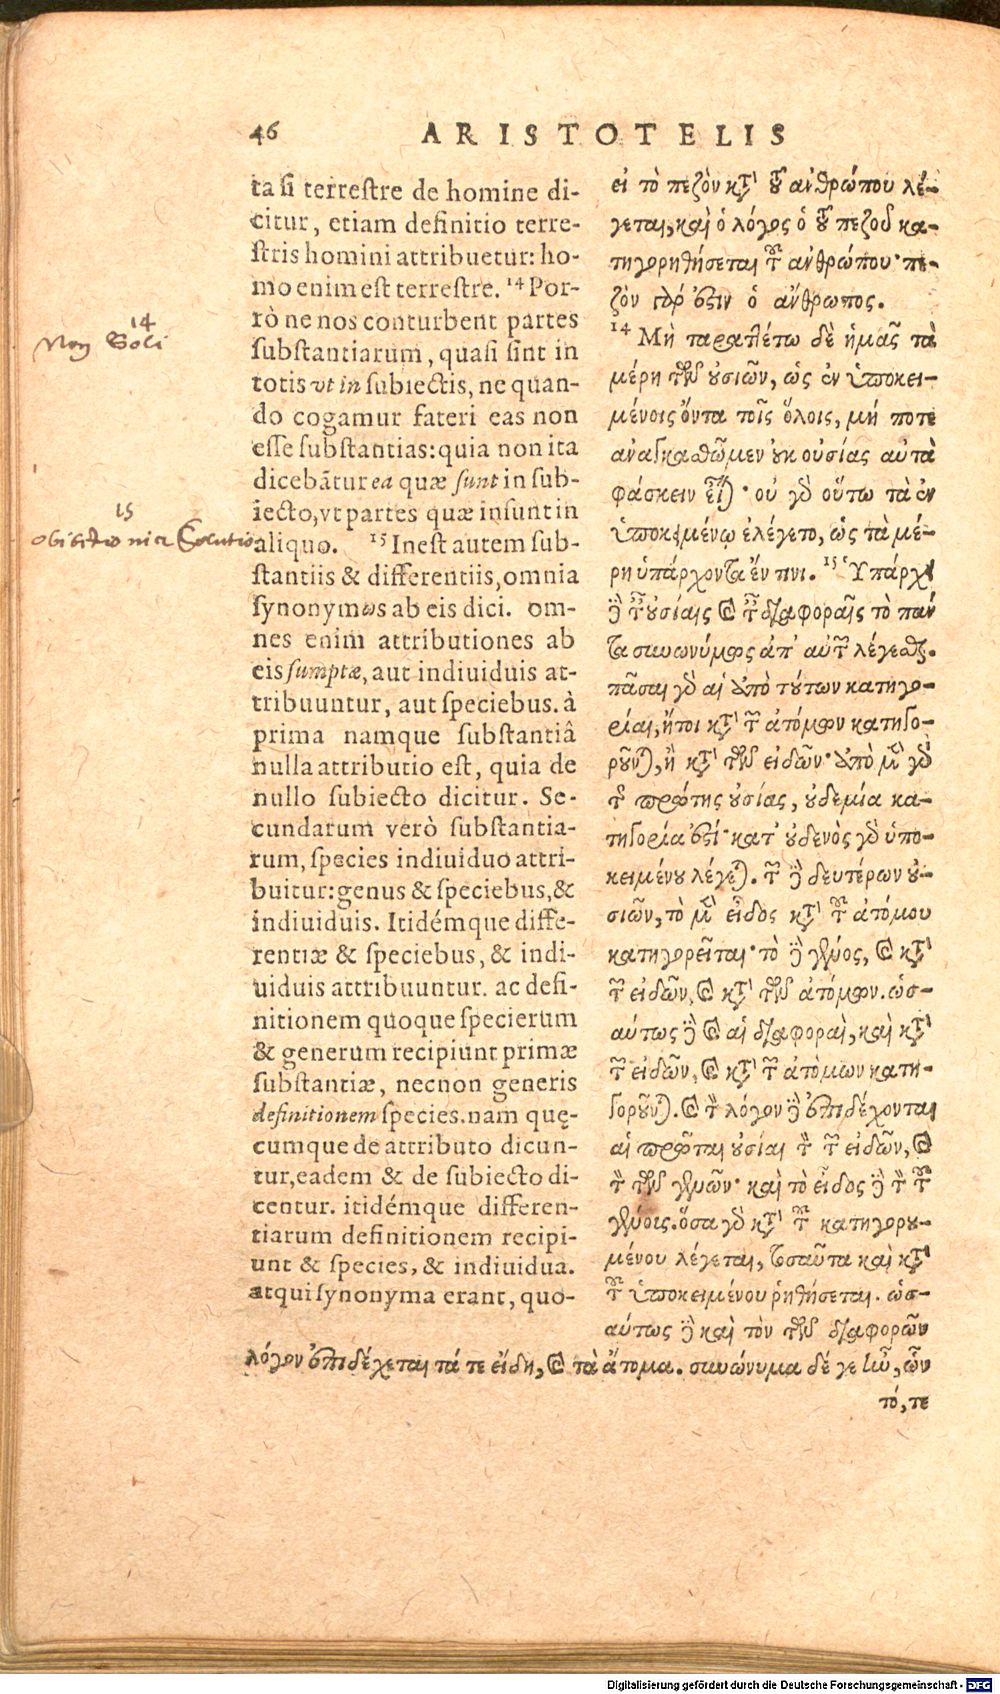 46 ARISTOTELIS
ta si terrestre de homine di-
citur, etiam definitio terre-
stris homini attribuetur: ho-
mo enim est terrestre. 14 Por-
rò ne nos conturbent partes
substantiarum, quasi sint in
totis vt in subiectis, ne quan-
do cogamur fateri eas non
esse substantias: quia non ita
dicebãtur ea quæ sunt in sub-
iecto, vt partes quæ insunt in
aliquo. 15 Inest autem sub-
stantiis & differentiis, omnia
synonymως ab eis dici. om-
nes enim attributiones ab
eis sumptæ, aut indiuiduis at-
tribuuntur, aut speciebus. à
prima namque substantiâ
nulla attributio est, quia de
nullo subiecto dicitur. Se-
cundarum verò substantia-
rum, species indiuiduo attri-
buitur: genus & speciebus, &
indiuiduis. Itidémque diffe-
rentiæ & speciebus, & indi-
uiduis attribuuntur. ac defi-
nitionem quoque specierum
& generum recipiunt primæ
substantiæ, necnon generis
definitionem species. nam quę-
cumque de attributo dicun-
tur, eadem & de subiecto di-
centur. itidémque differen-
tiarum definitionem recipi-
unt & species, & indiuidua.
atqui synonyma erant, quo-
εἰ τὸ πεζὸν κατὰ τοῦ ἀνθρώπου λέ-
γεται, καὶ ὁ λόγος ὁ τοῦ πεζοῦ κα-
τηγορηθήσεται τοῦ ἀνθρώπου· πε-
ζὸν γάρ ἐστιν ὁ ἄνθρωπος.
14 Μὴ ταραττέτω δὲ ἡμᾶς τὰ
μέρη τῶν οὐσιῶν, ὡς ἐν ὑποκει-
μένοις ὄντα τοῖς ὅλοις, μή ποτε
ἀναγκασθῶμεν οὐκ οὐσίας αὐτὰ
φάσκειν εἶναι· οὐ γὰρ οὕτω τὰ ἐν
ὑποκειμένῳ ἐλέγετο, ὡς τὰ μέ-
ρη ὑπάρχοντα ἔν τινι. 15 Ὑπάρχει
δὲ ταῖς οὐσίαις καὶ ταῖς διαφοραῖς τὸ πάν
τα συνωνύμως ἀπ' αὐτῶν λέγεσθαι.
πᾶσαι γὰρ αἱ ἀπὸ τούτων κατηγο-
ρίαι, ἤτοι κατὰ τῶν ἀτόμων κατηγο-
ροῦνται, ἢ κατὰ τῶν εἰδῶν· ἀπὸ μὲν γὰρ
τῆς πρώτης οὐσίας, οὐδεμία κα-
τηγορία ἐστί· κατ' οὐδενὸς γὰρ ὑπο-
κειμένου λέγεται. τῶν δὲ δευτέρων οὐ-
σιῶν, τὸ μὲν εἶδος κατὰ τοῦ ἀτόμου
κατηγορεῖται· τὸ δὲ γένος, καὶ κατὰ
τῶν εἰδῶν, καὶ κατὰ τῶν ἀτόμων. ὡσ-
αύτως δὲ καὶ αἱ διαφοραὶ, καὶ κατὰ
τῶν εἰδῶν, καὶ κατὰ τῶν ἀτόμων κατη-
γοροῦνται. καὶ τὸν λόγον δὲ ἐπιδέχονται
αἱ πρῶται οὐσίαι τὸν τῶν εἰδῶν, καὶ
τὸν τῶν γενῶν· καὶ τὸ εἶδος δὲ τὸν τοῦ
γένους. ὅσα γὰρ κατὰ τοῦ κατηγορου-
μένου λέγεται, τοσαῦτα καὶ κατὰ
τοῦ ὑποκειμένου ῥηθήσεται. ὡσ-
αύτως δὲ καὶ τὸν τῶν διαφορῶν
λόγον ἐπιδέχεται τά τε εἴδη, καὶ τὰ ἄτομα. συνώνυμα δέ γε ἦν, ὧν
τό, τε
14
Non Soli
15
Solutio
Digitalisierung gefördert durch die Deutsche Forschungsgemeinschaft - DFG